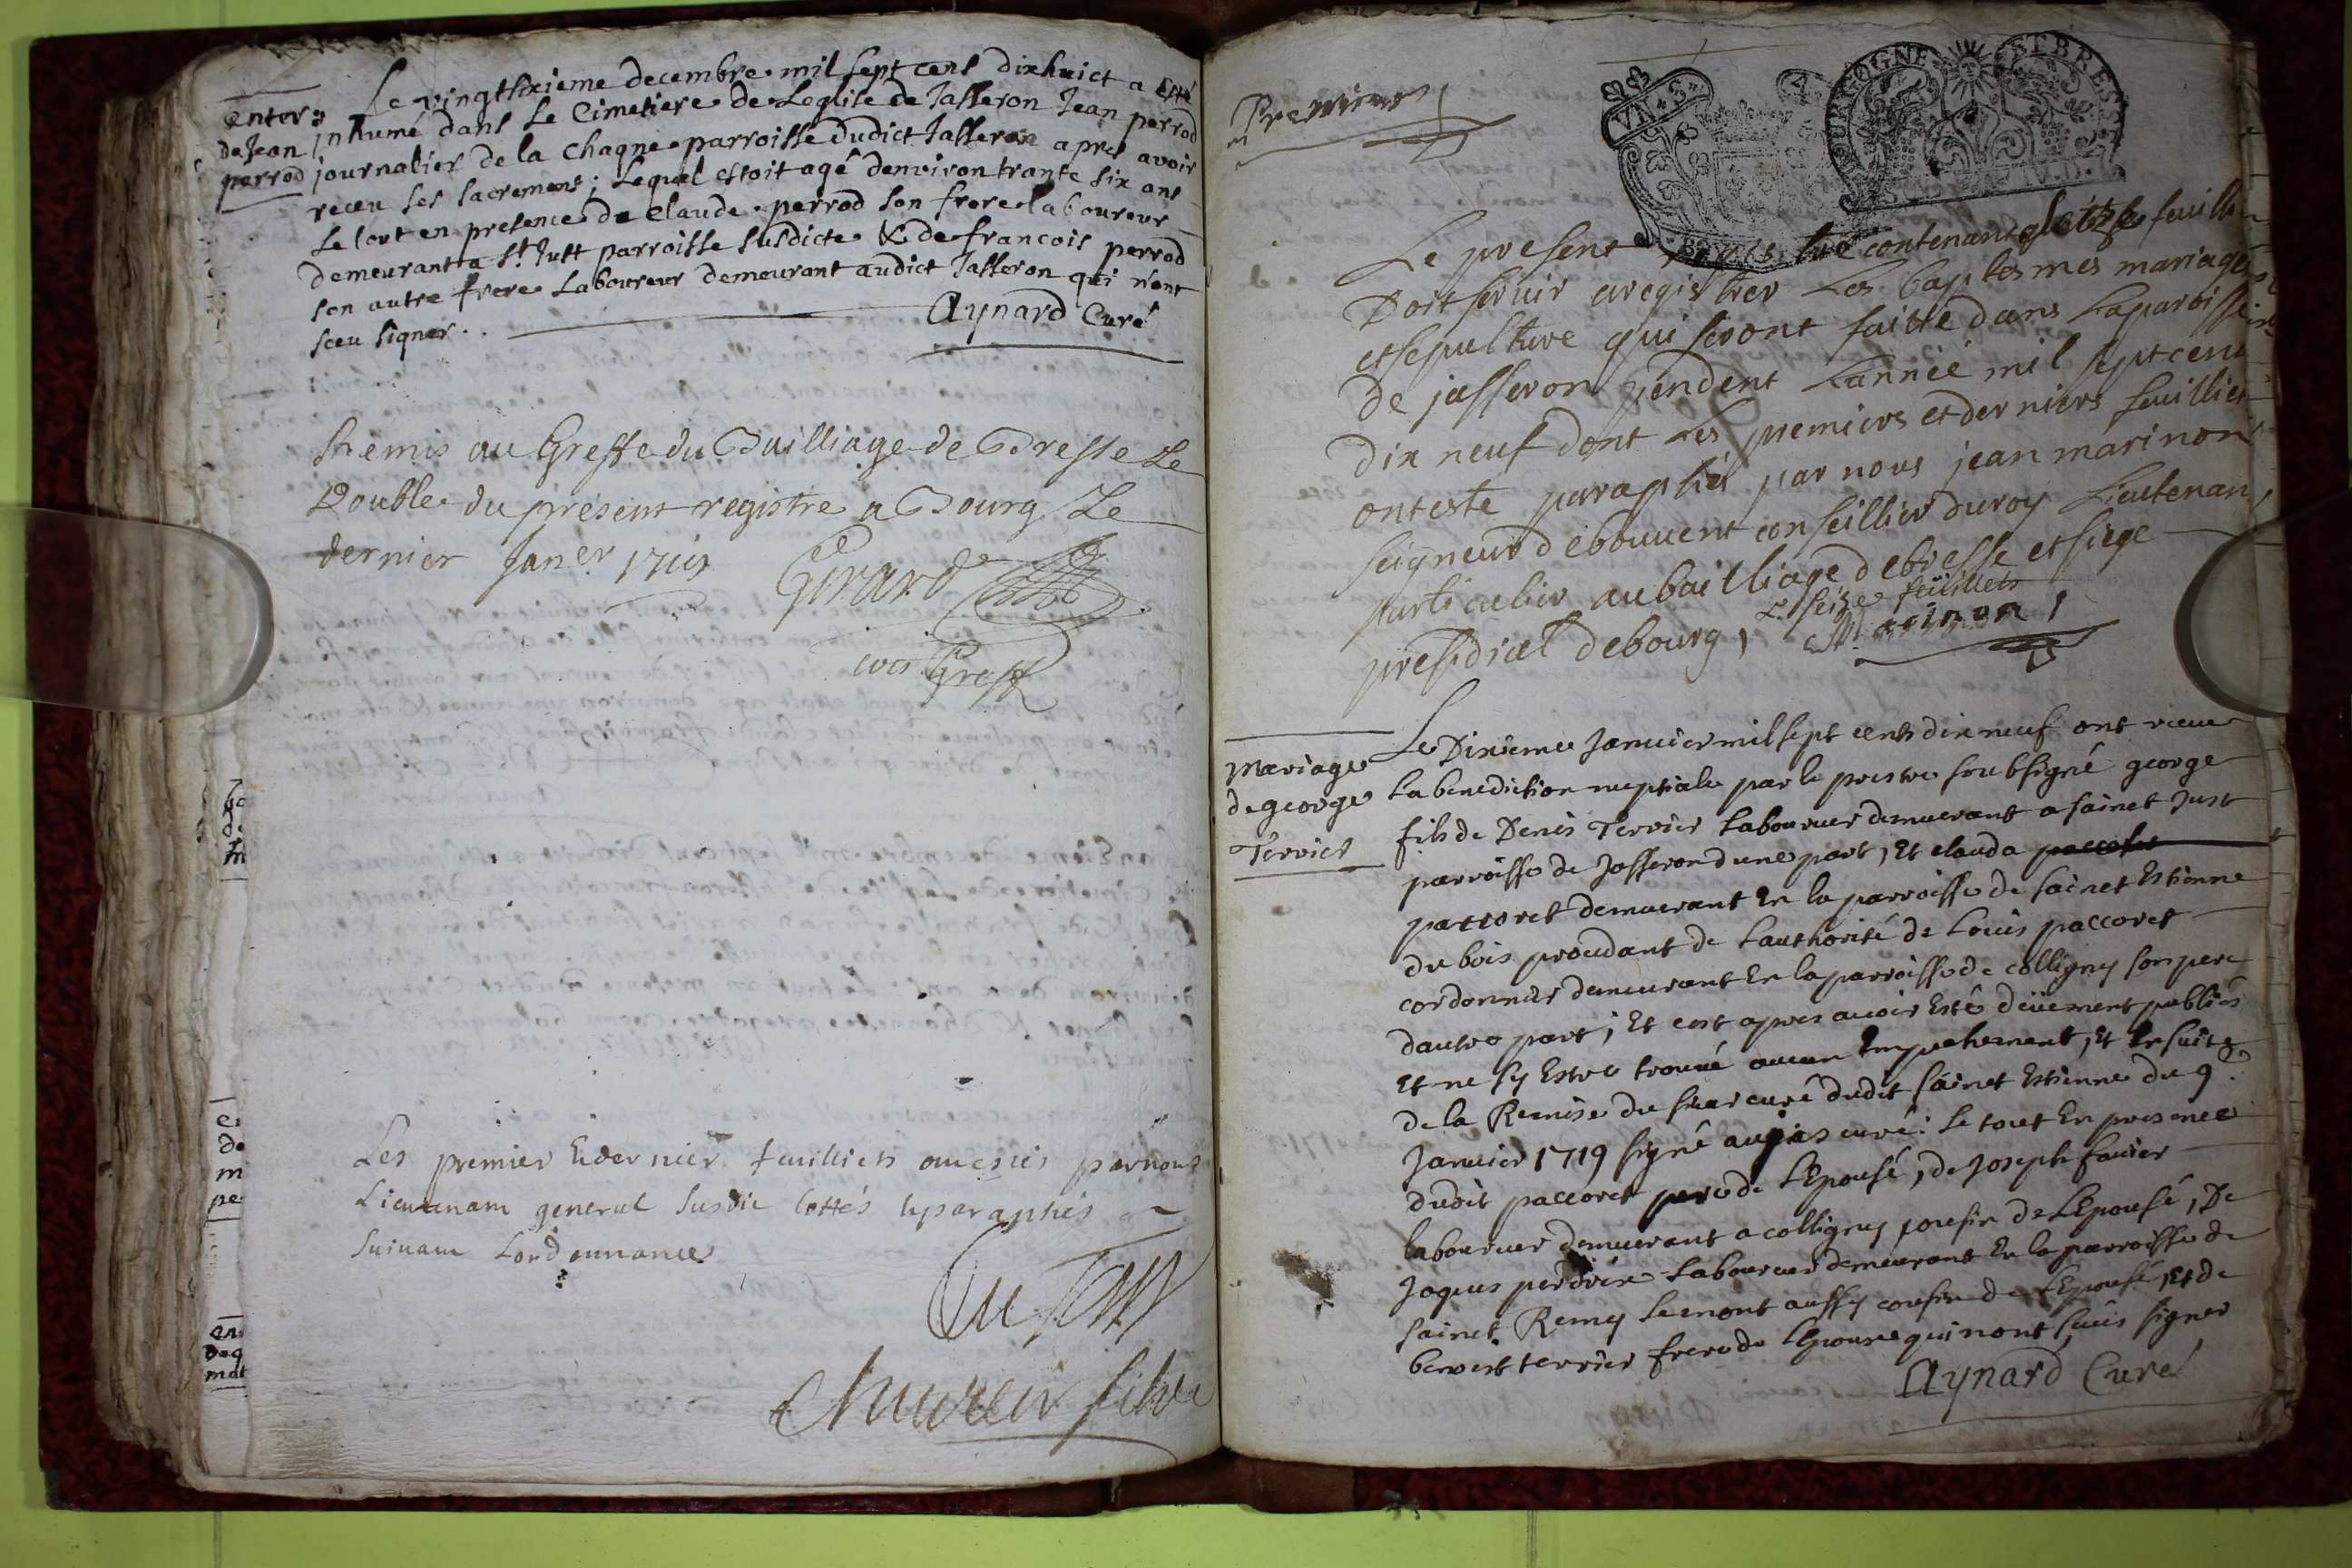 enter
de Jean
perrod
Le vingt sixieme decembre mil sept cent dixhuict a esté
inhumé dans Le Cimetiere de Leglise de Jasseron Jean perrod
journalier de la Chagne parroisse dudict Jasseron apres avoir
receu ses sacremens; Lequel estoit agé denviron trante six ans
Le tout en presence de Claude perrod son frere laboureur
demeurant a St Just parroisse susdicte & de francois perrod
son autre frere Laboureur demeurant audict Jasseron qui n'ont
sceu signer.
Aynard Curé
Remis au Greffe du Bailliage de Bresse Le
Double du present registre a Bourg Le
dernier Janer
Girard
Greff
Les premier et dernier feuilliets par nous
Lieutenant general susdit cottés et paraphés
suivant Lordonnance
Premier
BOURGOGNE ET BRESSE
Le present contenant feuillet
Doit servir aregistrer Les baptesmes mariages
et sepulture qui seront faitte dans Laparoisse
De jasseron pendent Lannéé mil sept cent
Dix neuf dont Les premiers et derniers feuilliet
ont esté paraphés par nous jean marinon
seigneur debouvent conseillier du roy Lieutenant
particulier aubailliage debresse et siege
presidial debourg,
seize feüilliets
Marinon
mariage
de george
Terrier
Le Dixieme Januier mil sept cents dix neuf ont receu
La benediction nuptiale par le prestre soubsigné george
fils de Denis Terrier Laboureur demeurant a sainct Just
parroisse de Jasseron dune part, Et clauda
paccoret demeurant En la parroisse de sainct Estienne
du bois procedant de Lauthorité de Louis paccoret
cordonnier demeurant En la parroisse de colligny son pere
dautre part; Et cest apres auoir Esté deüement publiés
Et ne sy Estre trouué aucun Empechement, Et Ensuite
de la Remise du sieur curé dudit sainct Estienne du 9e
Januier 1719 signé curé: Le tout En presence
dudit paccoret pere de LEpousé, de Joseph fauier
laboureur demeurant a colligny cousin de LEpousé, De
Jaques Laboureur demeurant En la parroisse de
sainct Remy Lemont aussy cousin de LEpousé, Et de
benoist terrier frere de qui nont sceus signer
Aynard Curé